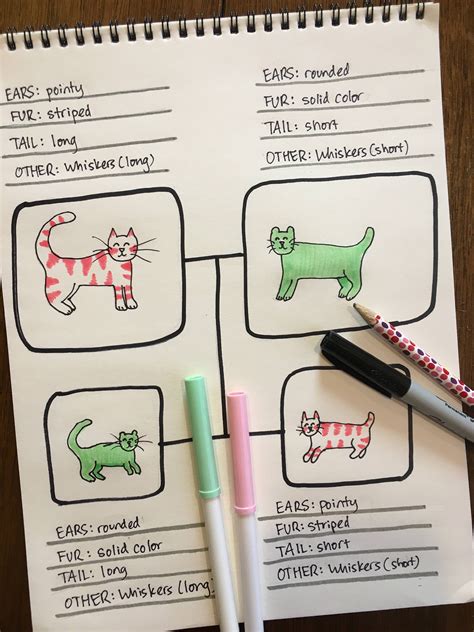 EARS: pointy
FUR: striped
TAIL: long
OTHER: Whiskers (long)
EARS: rounded
FUR: solid color
TAIL: short
OTHER: Whiskers (short)
EARS: rounded
FUR: solid color
TAIL: long
OTHER: Whiskers (long)
EARS: pointy
FUR: striped
TAIL: short
OTHER: Whiskers (short)